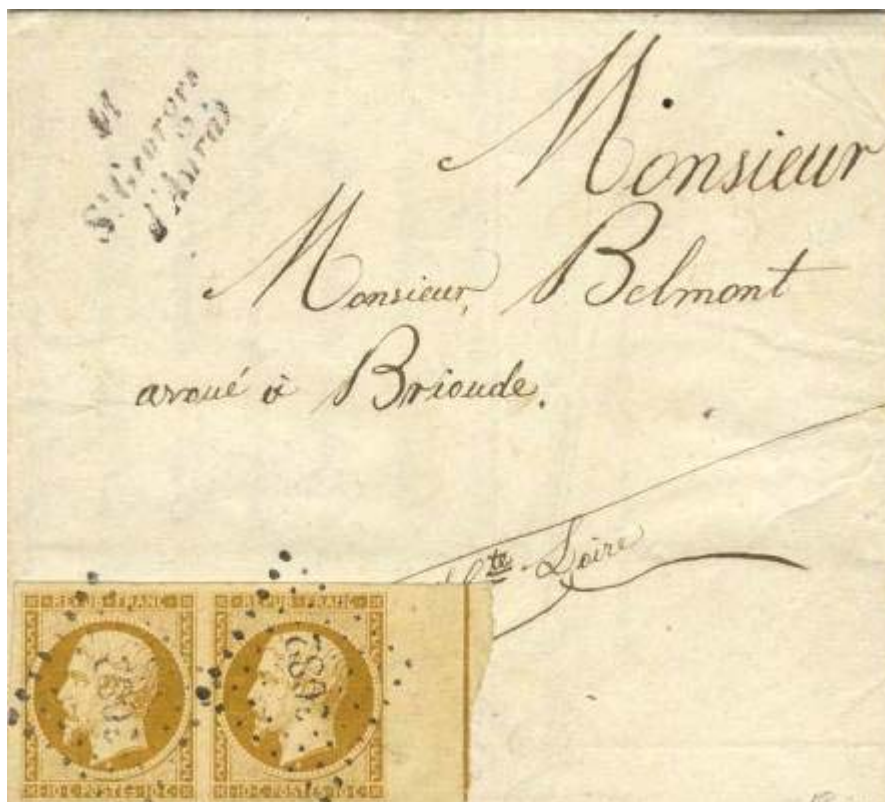 41
St Georges
d'Aurac
Monsieur
Monsieur, Belmont
avoué à Brioude.
hte-Loire
REPUB-FRANC REPUB-FRANC
10-C-POSTES-10-C 10-C-POSTES-10-C